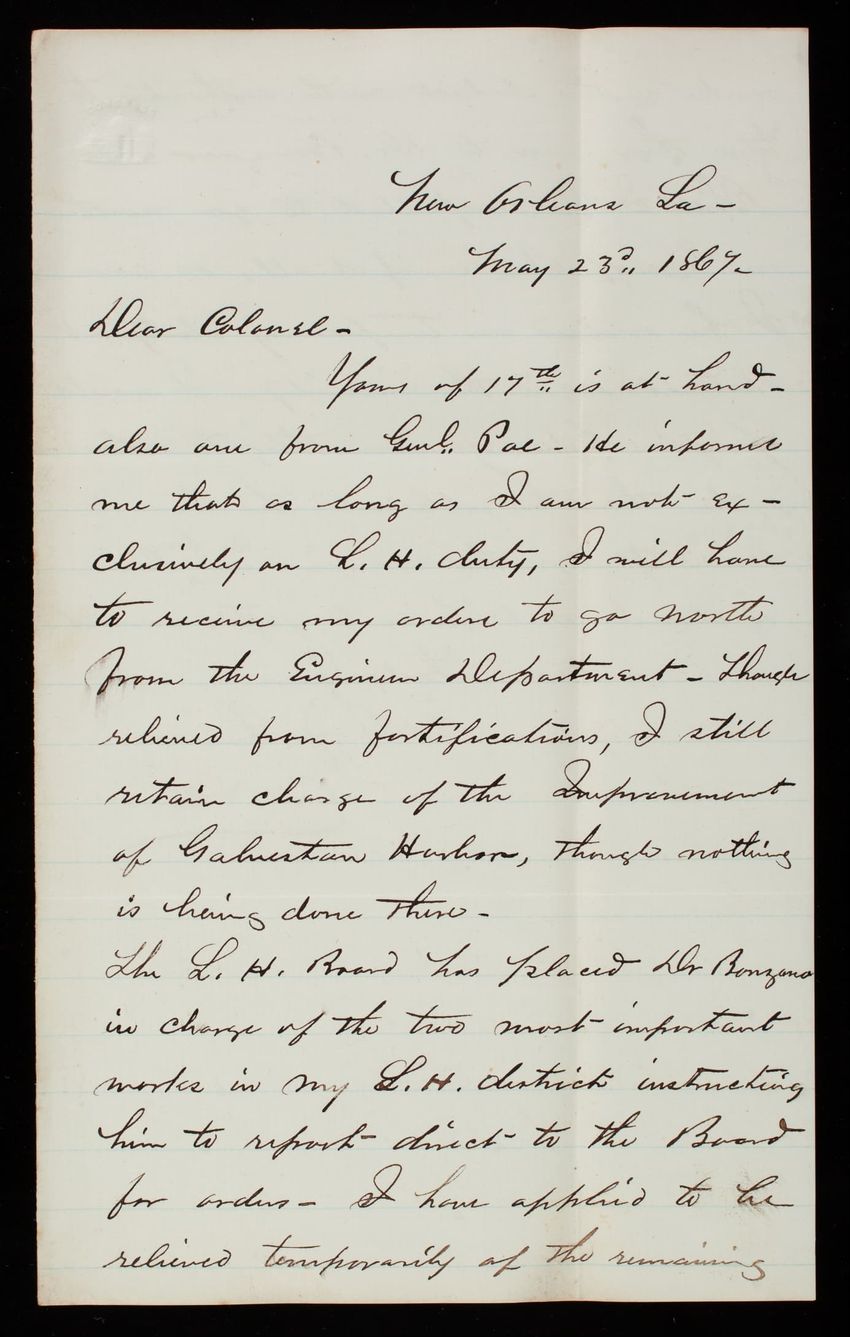 New Orleans La -
May 23d,, 1867 -
Dear Colonel -
Yours of 17th is at hand -
also one from Genl. Poe - He informs
me that as long as I am not ex -
clusively on L. H. duty, I will have
to receive my orders to go north
from the Engineer Department - Though
relieved from fortifications, I still
retain charge of the Improvement
of Galveston Harbor, though nothing
is being done there -
The L. H. Board has placed Dr Bonzano
in charge of the two most important
works in my L. H. district instructing
him to report direct to the Board
for orders - I have applied to be
relieved temporarily of the remaining